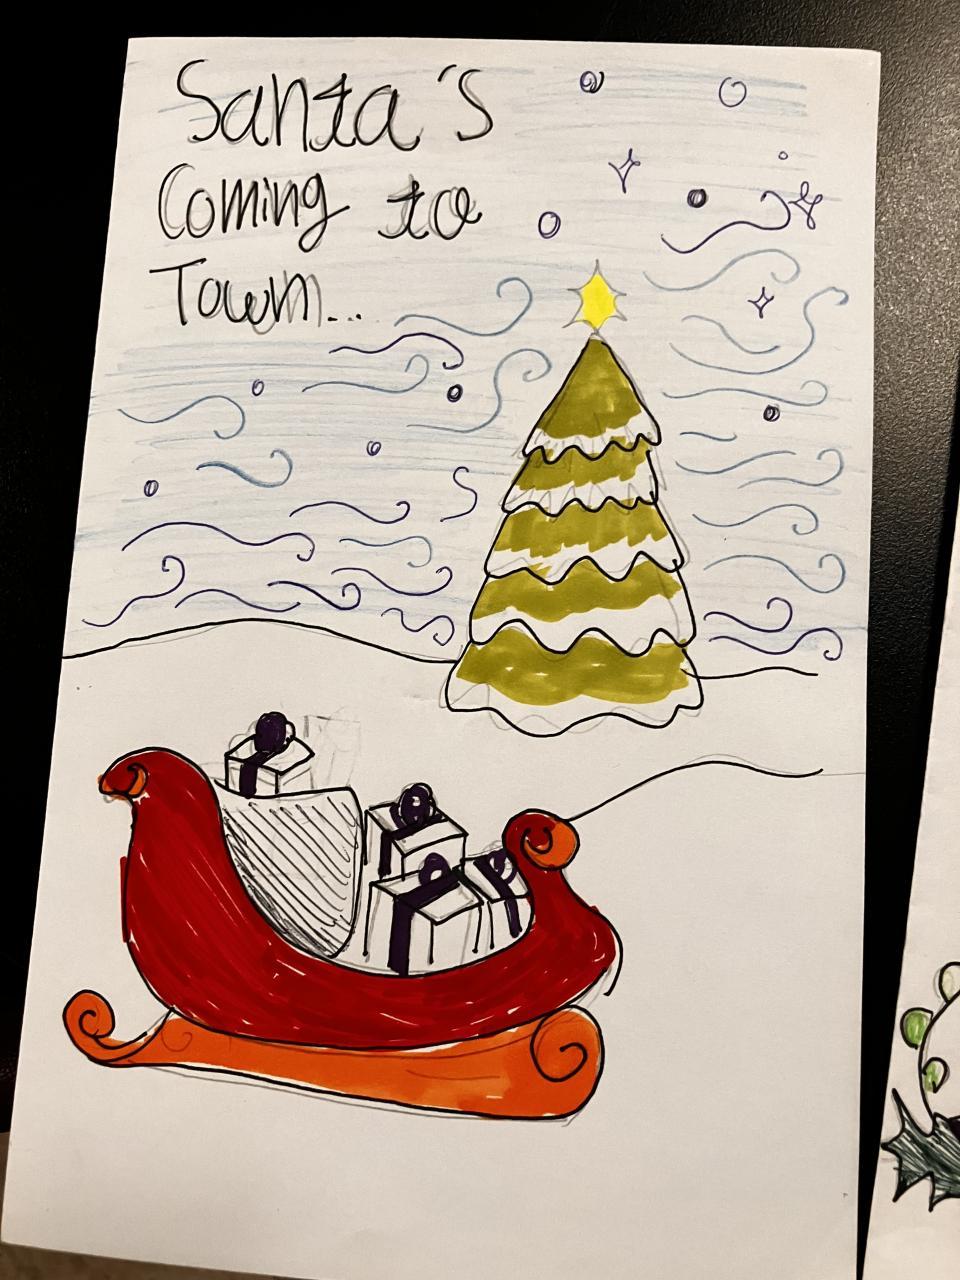 Santa's
Coming to
Town...